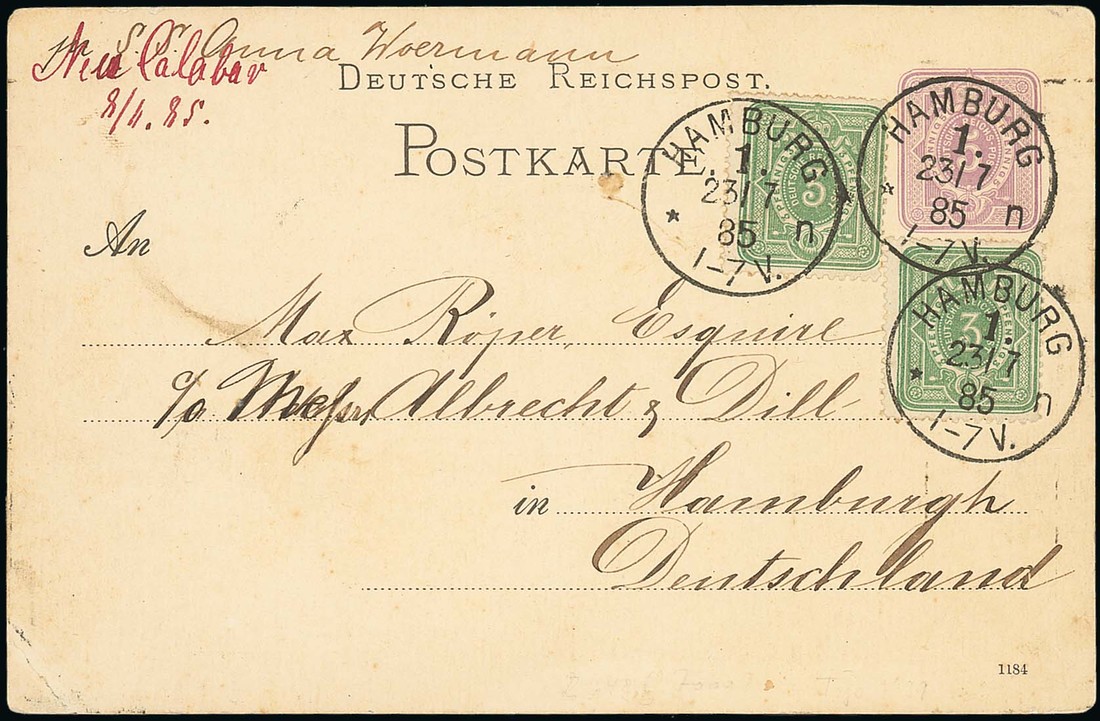 pr S.S. Anna Woermann
New Calabar
DEUTSCHE REICHSPOST.
POSTKARTE
An
Max Röper, Esquire
c/o Messrs Albrecht & Dill
in Hamburgh
Deutschland
1184
HAMBURG
1.
23/7
85 n
1-7V.
HAMBURG
1.
23/7
85 n
1-7V.
HAMBURG
1.
23/7
85 n
1-7V.
3 PFENNIG
3
3